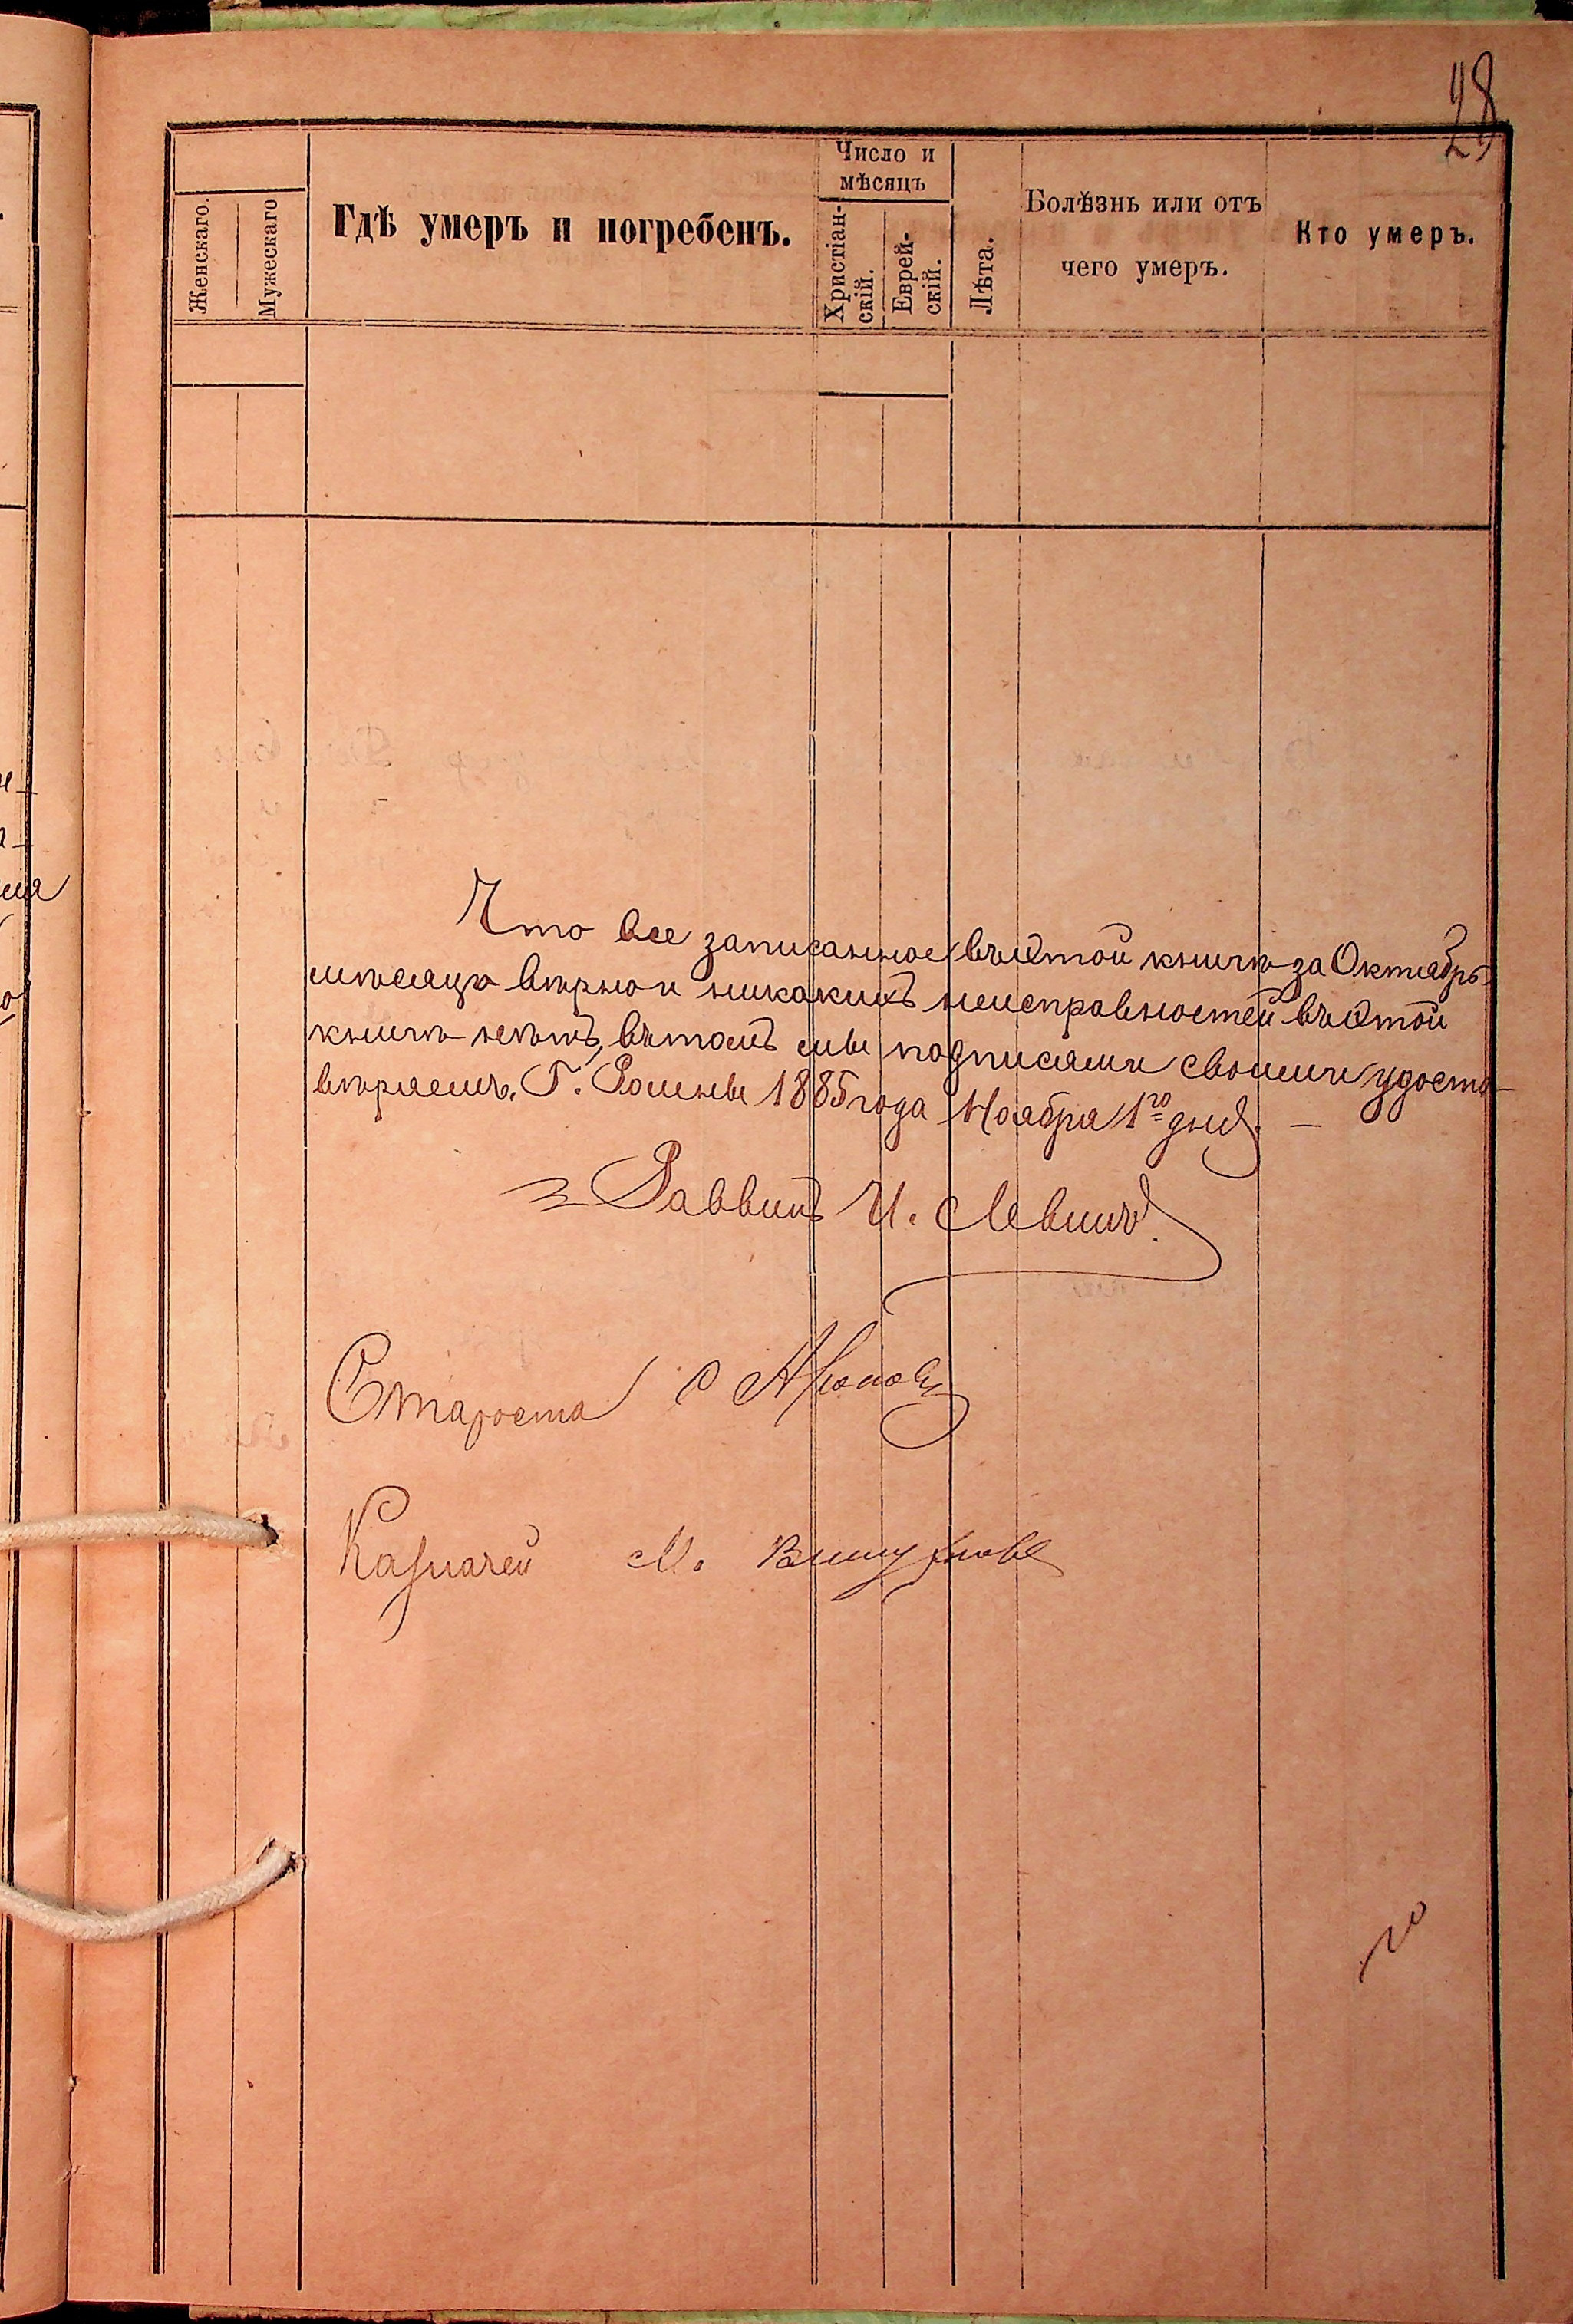 28
Женскаго.
Мужескаго
Гдѣ умеръ и погребенъ.
Число и
мѣсяцъ
Христіан-
скій.
Еврей-
скій.
Лѣта.
Болѣзнь или отъ
чего умеръ.
Кто умеръ.
Что все записанное въ этой книгѣ за Октябрь
мѣсяцъ вѣрно и никакихъ неисправностей въ этой
книгѣ нѣтъ, въ томъ мы подписями своими удосто-
вѣряемъ. Г. Ромны 1885 года Ноября 1го дня. —
Раввинъ И. Левинъ.
Староста
Казначей М.